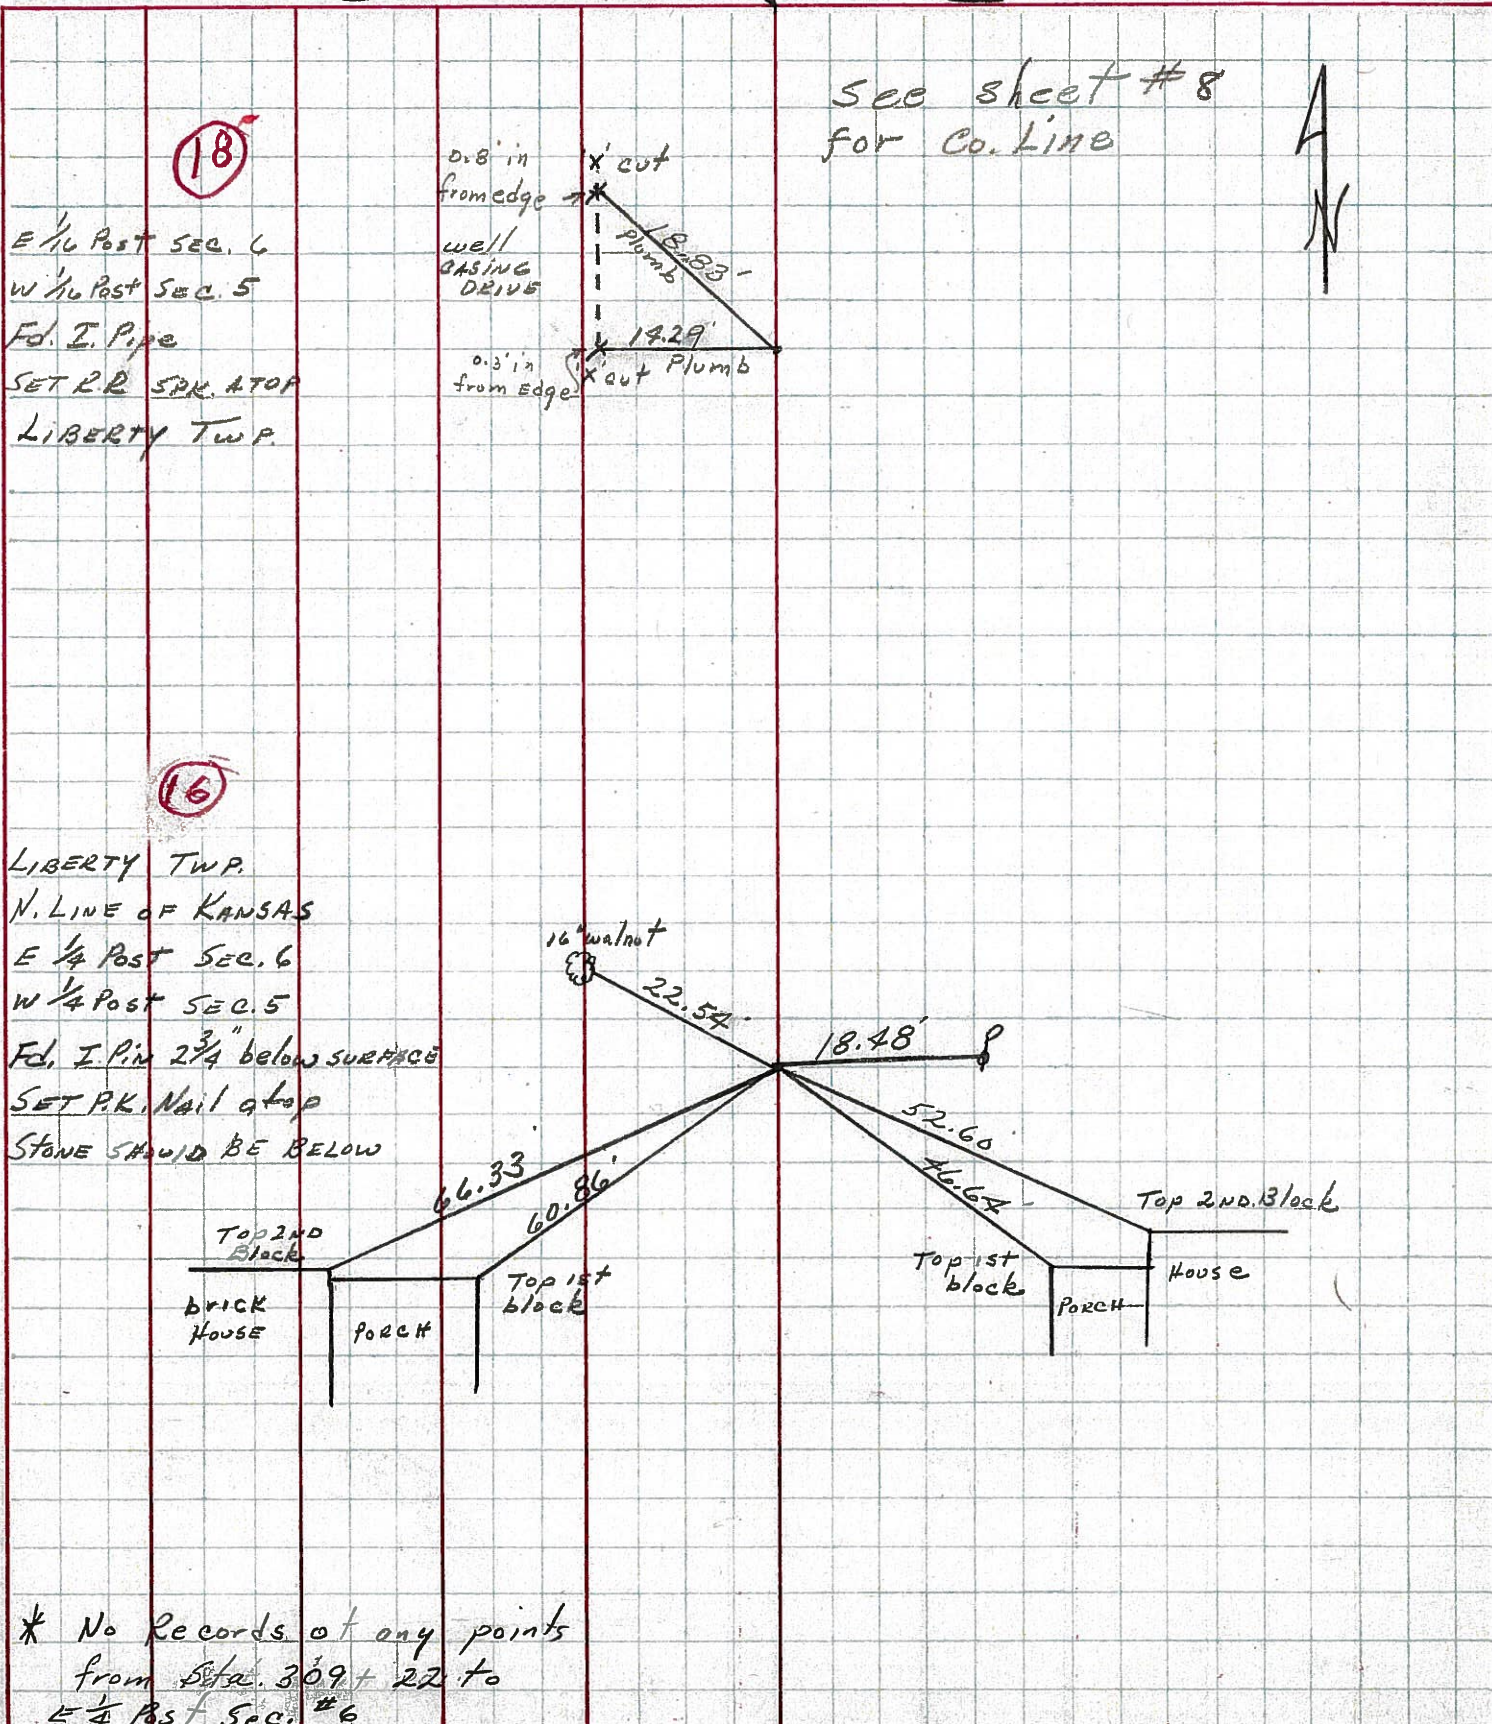 See sheet #8
for Co. Line
N
18
E 1/16 Post SEC. 6
W 1/16 Post SEC. 5
Fd. I. Pipe
SET R.R SPK. ATOP
LIBERTY TWP.
0.8' in
from edge
'X' cut
well
CASING
DRIVE
18.83'
Plumb
14.29'
Plumb
0.3' in
from Edge
'X' cut
16
LIBERTY TWP.
N. LINE OF KANSAS
E 1/4 Post SEC. 6
W 1/4 Post SEC. 5
Fd. I. Pin 2 3/4" below SURFACE
SET P.K. Nail atop
STONE SHOULD BE BELOW
16" walnut
22.54'
18.48'
66.33
60.86'
52.60
46.64
Top 2ND
Block
brick
HOUSE
PORCH
Top 1st
block
Top 1st
block
PORCH
Top 2ND. Block
House
* No Records of any points
from Sta. 309 + 22 to
E 1/4 Post Sec. #6